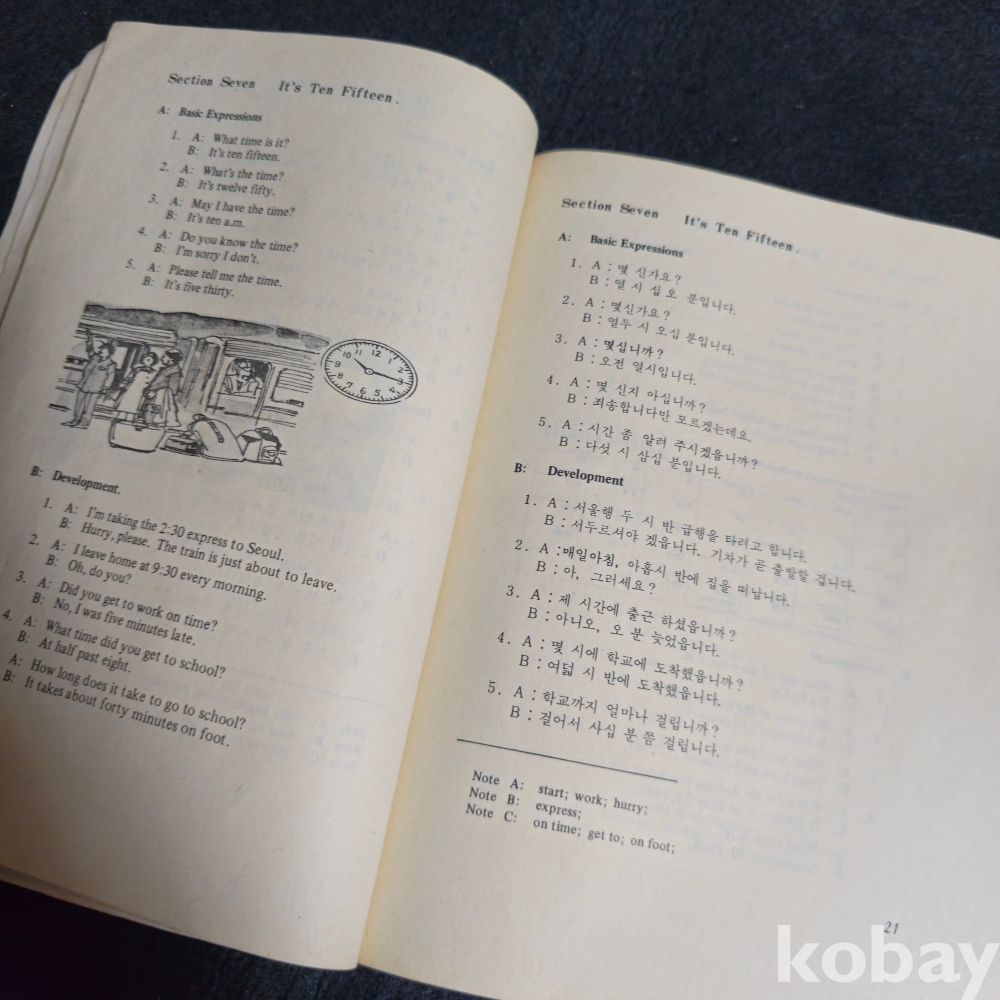 Section Seven It's Ten Fifteen.
A: Basic Expressions
1. A: What time is it?
B: It's ten fifteen.
2. A: What's the time?
B: It's twelve fifty.
3. A: May I have the time?
B: It's ten a.m.
4. A: Do you know the time?
B: I'm sorry I don't.
5. A: Please tell me the time.
B: It's five thirty.
12
1
2
3
4
5
6
7
8
9
10
11
B: Development.
1. A: I'm taking the 2:30 express to Seoul.
B: Hurry, please. The train is just about to leave.
2. A: I leave home at 9:30 every morning.
B: Oh, do you?
3. A: Did you get to work on time?
B: No, I was five minutes late.
4. A: What time did you get to school?
B: At half past eight.
A: How long does it take to go to school?
B: It takes about forty minutes on foot.
Section Seven It's Ten Fifteen.
A: Basic Expressions
1. A : 몇 신가요?
B : 열 시 십 오 분입니다.
2. A : 몇신가요?
B : 열두 시 오십 분입니다.
3. A : 몇십니까?
B : 오전 열시입니다.
4. A : 몇 신지 아십니까?
B : 죄송합니다만 모르겠는데요.
5. A : 시간 좀 알려 주시겠읍니까?
B : 다섯 시 삼십 분입니다.
B: Development
1. A : 서울행 두 시 반 급행을 타려고 합니다.
B : 서두르셔야 겠읍니다. 기차가 곧 출발할 겁니다.
2. A : 매일아침, 아홉시 반에 집을 떠납니다.
B : 아, 그러세요?
3. A : 제 시간에 출근 하셨읍니까?
B : 아니오, 오 분 늦었읍니다.
4. A : 몇 시에 학교에 도착했읍니까?
B : 여덟 시 반에 도착했읍니다.
5. A : 학교까지 얼마나 걸립니까?
B : 걸어서 사십 분 쯤 걸립니다.
Note A: start; work; hurry;
Note B: express;
Note C: on time; get to; on foot;
21
kobay